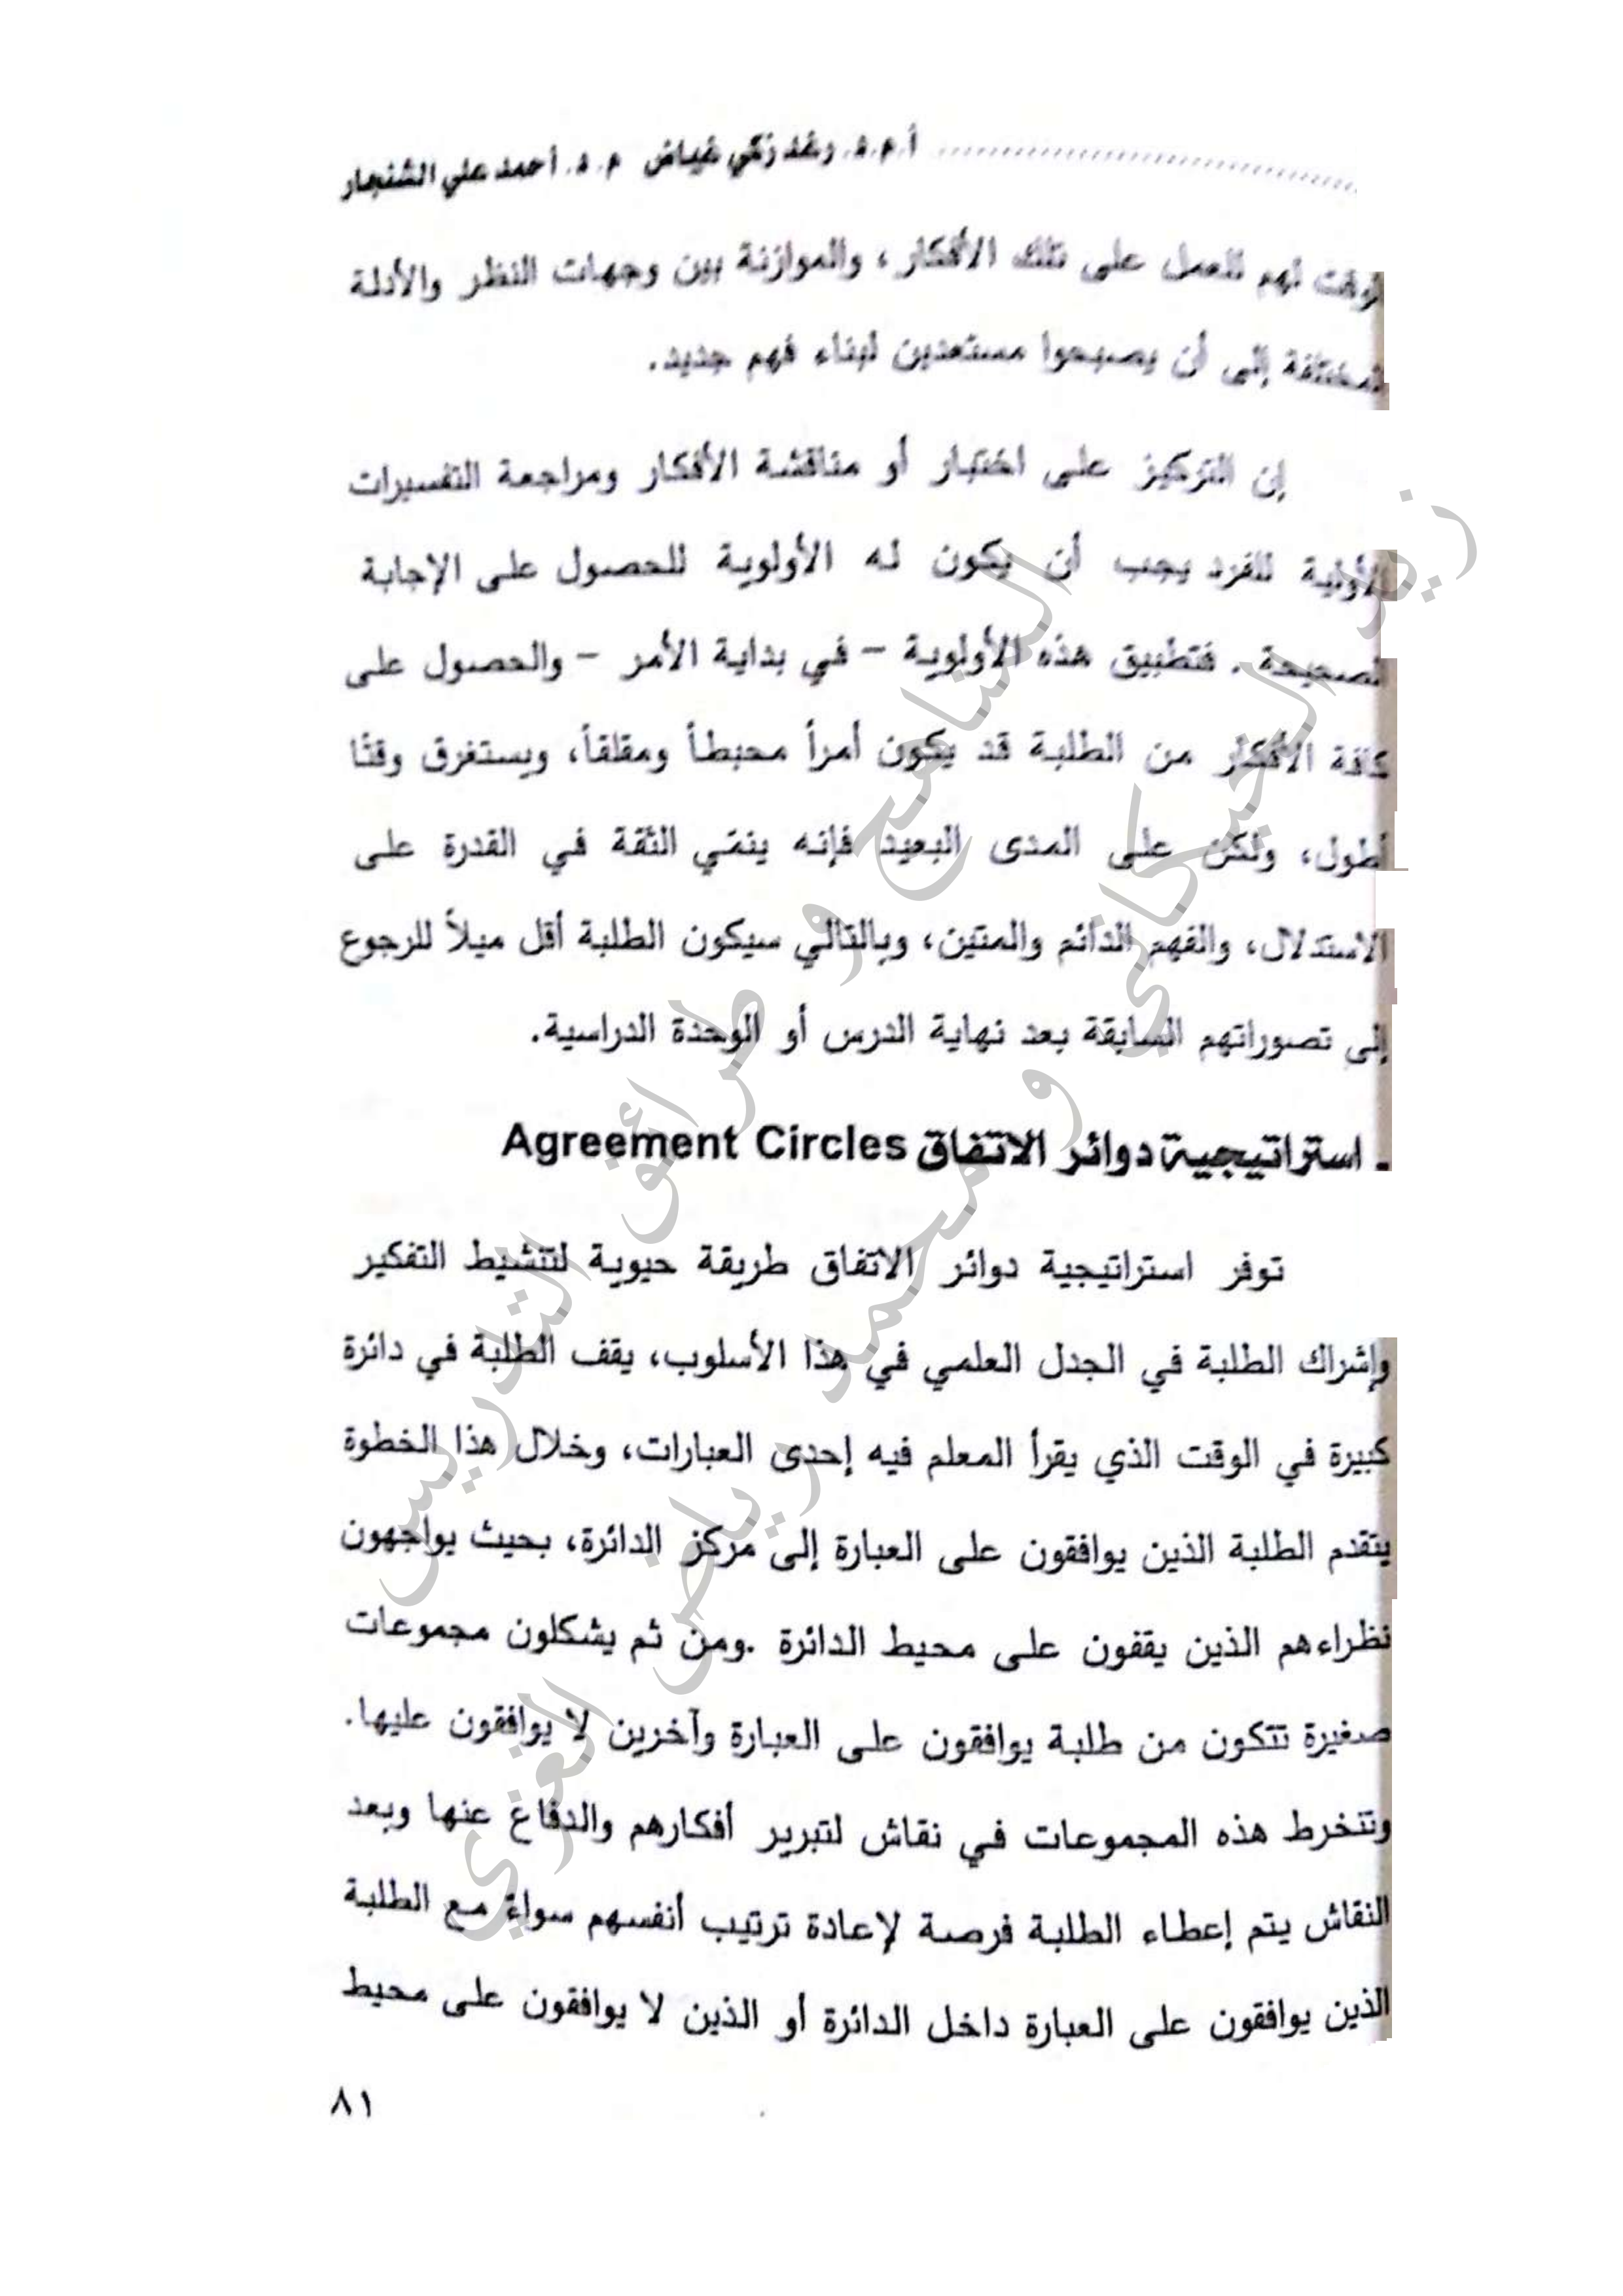 أ.م.د. رغد زكي غياض م.د. أحمد علي الشنجار
الوقت لهم للعمل على تلك الأفكار، والموازنة بين وجهات النظر والأدلة
المختلفة إلى أن يصبحوا مستعدين لبناء فهم جديد.
إن التركيز على اختبار أو مناقشة الأفكار ومراجعة التفسيرات
الأولية للفرد يجب أن يكون له الأولوية للحصول على الإجابة
الصحيحة. فتطبيق هذه الأولوية – في بداية الأمر – والحصول على
كافة الأفكار من الطلبة قد يكون أمراً محبطاً ومقلقاً، ويستغرق وقتًا
أطول، ولكن على المدى البعيد فإنه ينمّي الثقة في القدرة على
الاستدلال، والفهم الدائم والمتين، وبالتالي سيكون الطلبة أقل ميلاً للرجوع
إلى تصوراتهم السابقة بعد نهاية الدرس أو الوحدة الدراسية.
ـ استراتيجية دوائر الاتفاق Agreement Circles
توفر استراتيجية دوائر الاتفاق طريقة حيوية لتنشيط التفكير
وإشراك الطلبة في الجدل العلمي في هذا الأسلوب، يقف الطلبة في دائرة
كبيرة في الوقت الذي يقرأ المعلم فيه إحدى العبارات، وخلال هذا الخطوة
يتقدم الطلبة الذين يوافقون على العبارة إلى مركز الدائرة، بحيث يواجهون
نظراءهم الذين يقفون على محيط الدائرة .ومن ثم يشكلون مجموعات
صغيرة تتكون من طلبة يوافقون على العبارة وآخرين لا يوافقون عليها.
وتنخرط هذه المجموعات في نقاش لتبرير أفكارهم والدفاع عنها وبعد
النقاش يتم إعطاء الطلبة فرصة لإعادة ترتيب أنفسهم سواءً مع الطلبة
الذين يوافقون على العبارة داخل الدائرة أو الذين لا يوافقون على محيط
٨١
المناهج و طرائق التدريس
زيد الحيكاني و محمد رياض الغزي